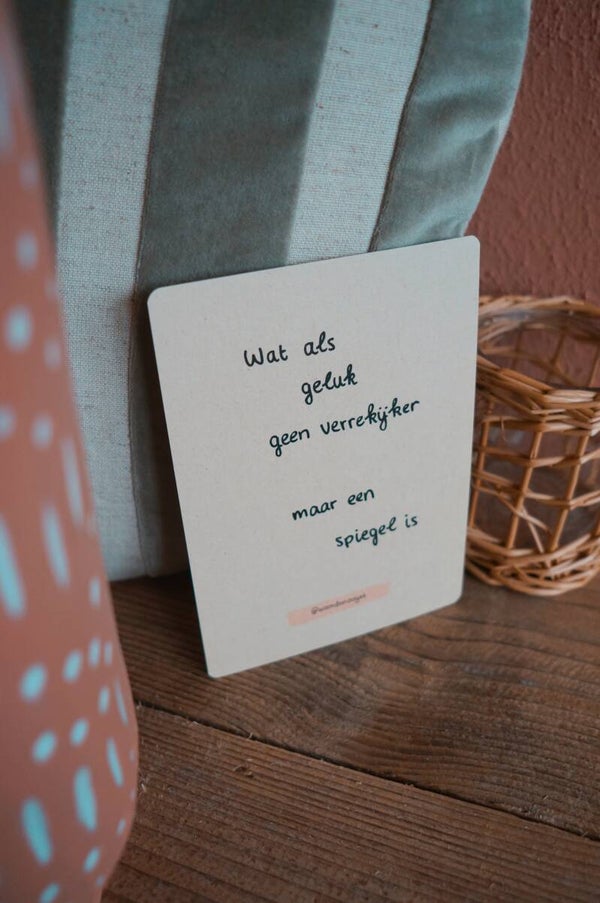 Wat als
geluk
geen verrekijker
maar een
spiegel is